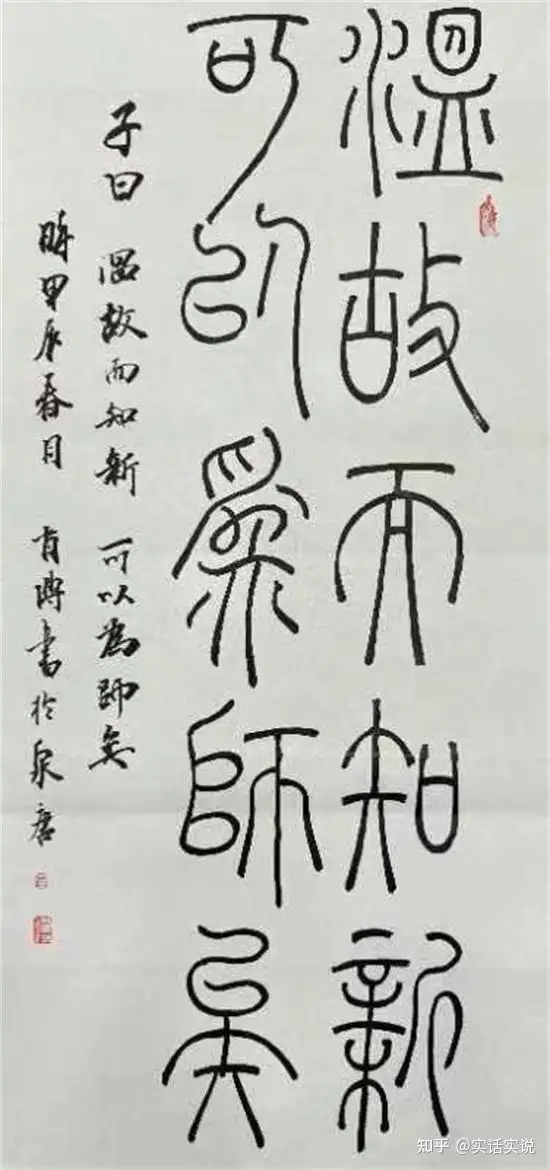 溫故而知新
可以爲師矣
子曰 温故而知新 可以為師矣
時甲辰春月 書於泉唐
知乎 @实话实说